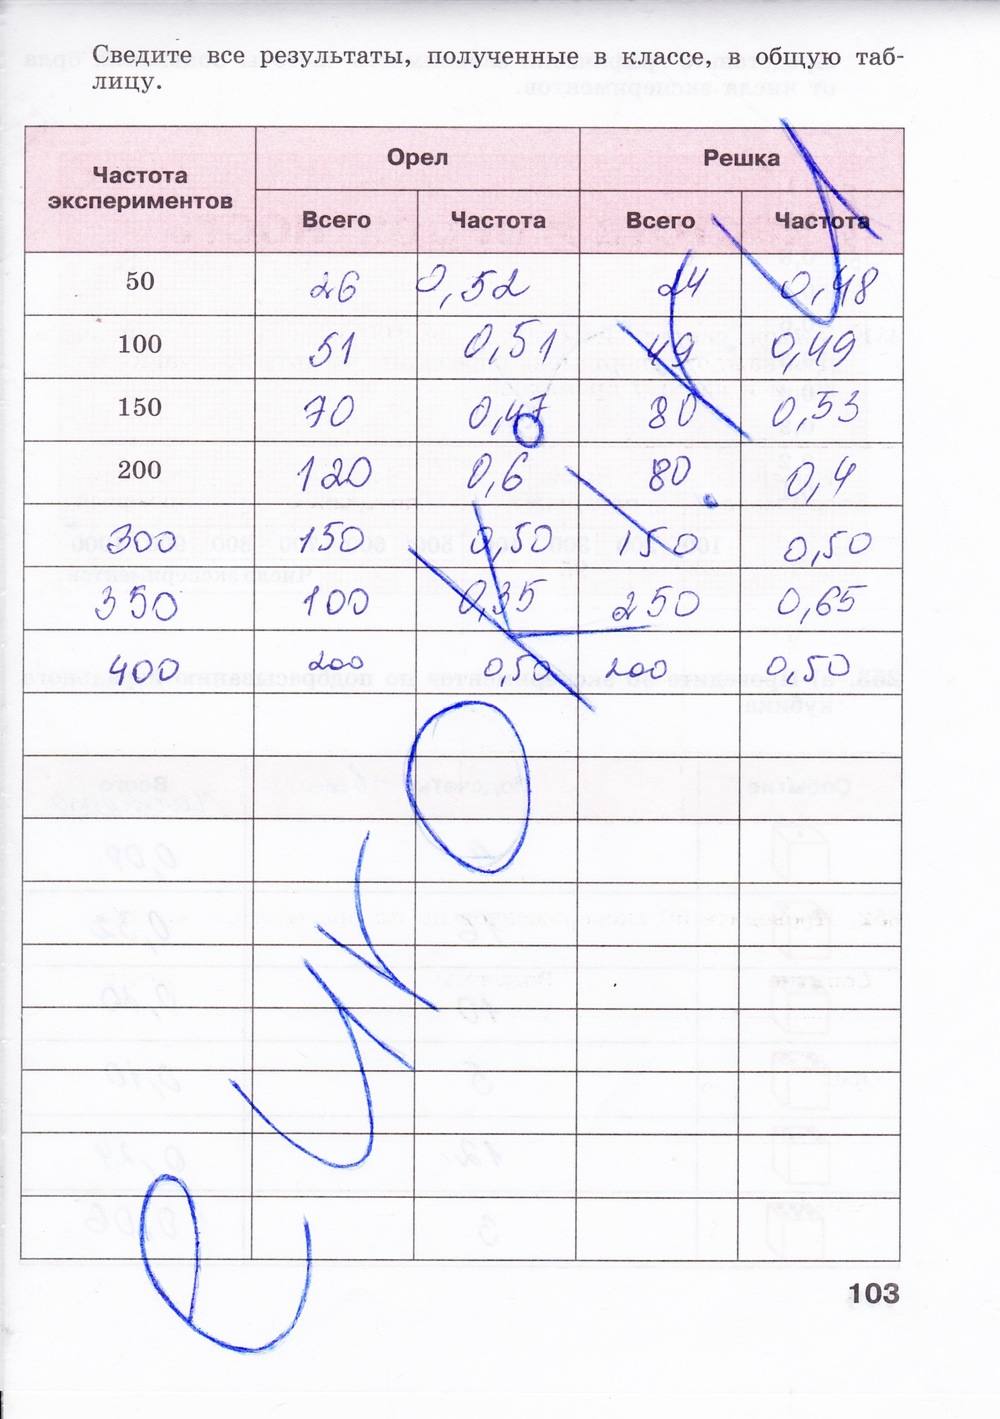 Сведите все результаты, полученные в классе, в общую таб-
лицу.
Частота экспериментов Орел Решка
Всего Частота Всего Частота
50 26 0,52 24 0,48
100 51 0,51 49 0,49
150 70 0,47 80 0,53
200 120 0,6 80 0,4
300 150 0,50 150 0,50
350 100 0,35 250 0,65
400 200 0,50 200 0,50
еуроки.ру
103